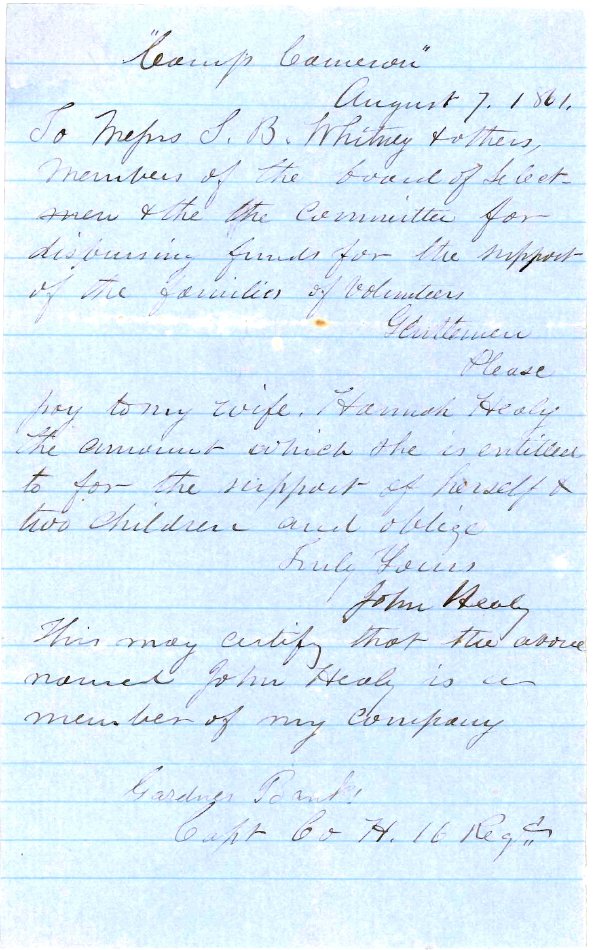 "Camp Cameron"
August 7. 1861.
To Messrs S. B. Whitney & others,
Members of the board of Select-
men & the the Committee for
disbursing funds for the support
of the families of Volunteers
Gentlemen
Please
pay to my wife. Hannah Healy
the amount which she is entitled
to for the support of herself &
two children and oblige
Truly Yours
John Healy
This may certify that the above
named John Healy is a
member of my company
Gardner Banks
Capt Co H. 16 Regt